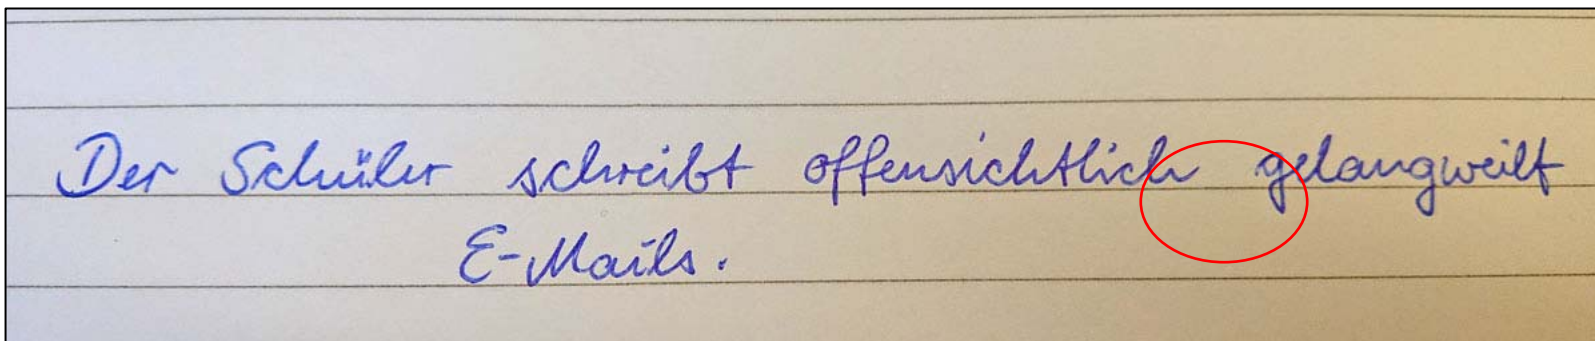 Der Schüler schreibt offensichtlich gelangweilt
E-Mails.